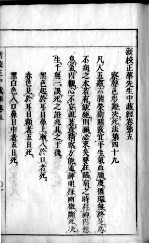 新校正華先生中藏經卷第五
察聲色形證決死法第四十九
凡人五臟六腑榮衛關竅宜平生氣血順度循環無終是為
不病之本若有缺絕則禍必來矣要在臨病之時存神內想
息氣內觀心不妄視著意精察方能通神明探幽微斷死決
生千無一誤死之證兆具之于後
黑色起於耳目鼻上漸入於口者死
赤色見於耳目額者五日死
黑白色入口鼻目中者五日死